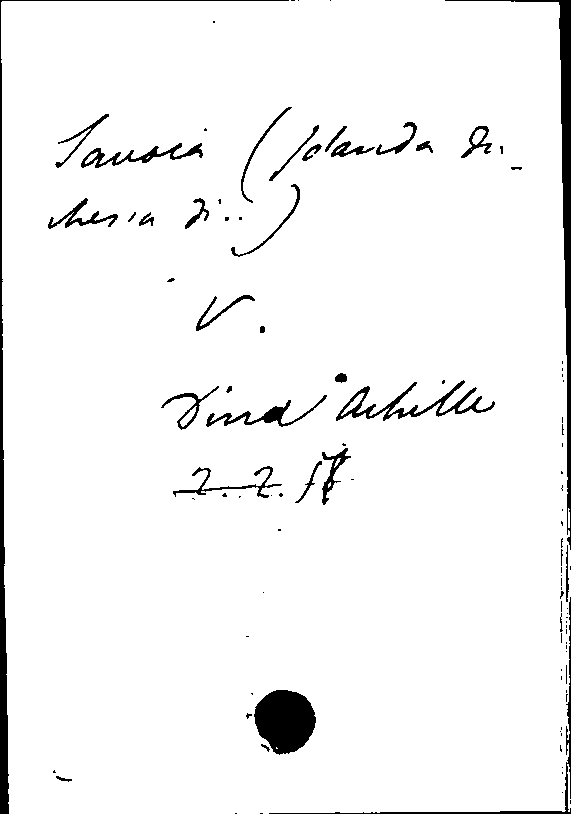 Savoia (Jolanda du-
chessa di..)
V.
Dina Achille